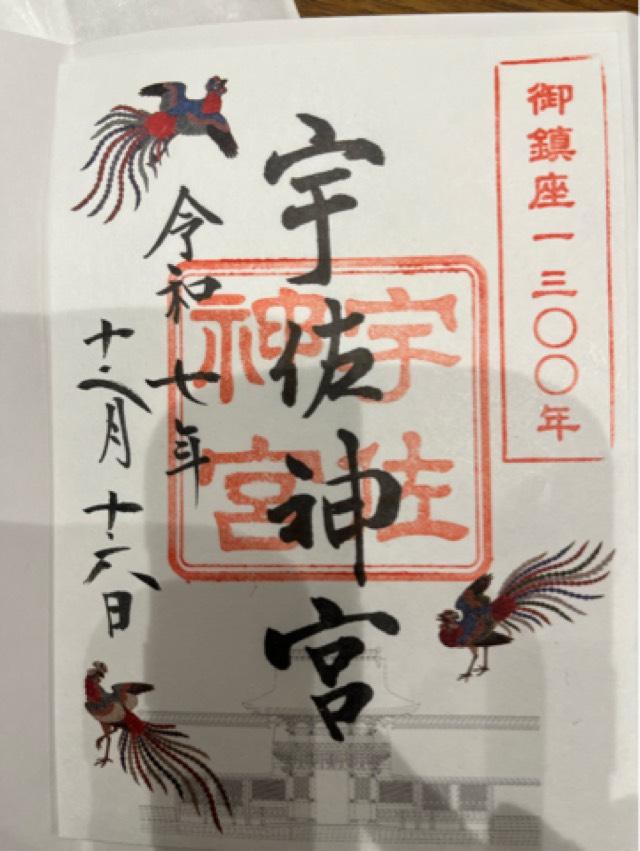 御鎮座一三〇〇年
宇佐神宮
宇佐
神宮
令和七年
十二月十六日